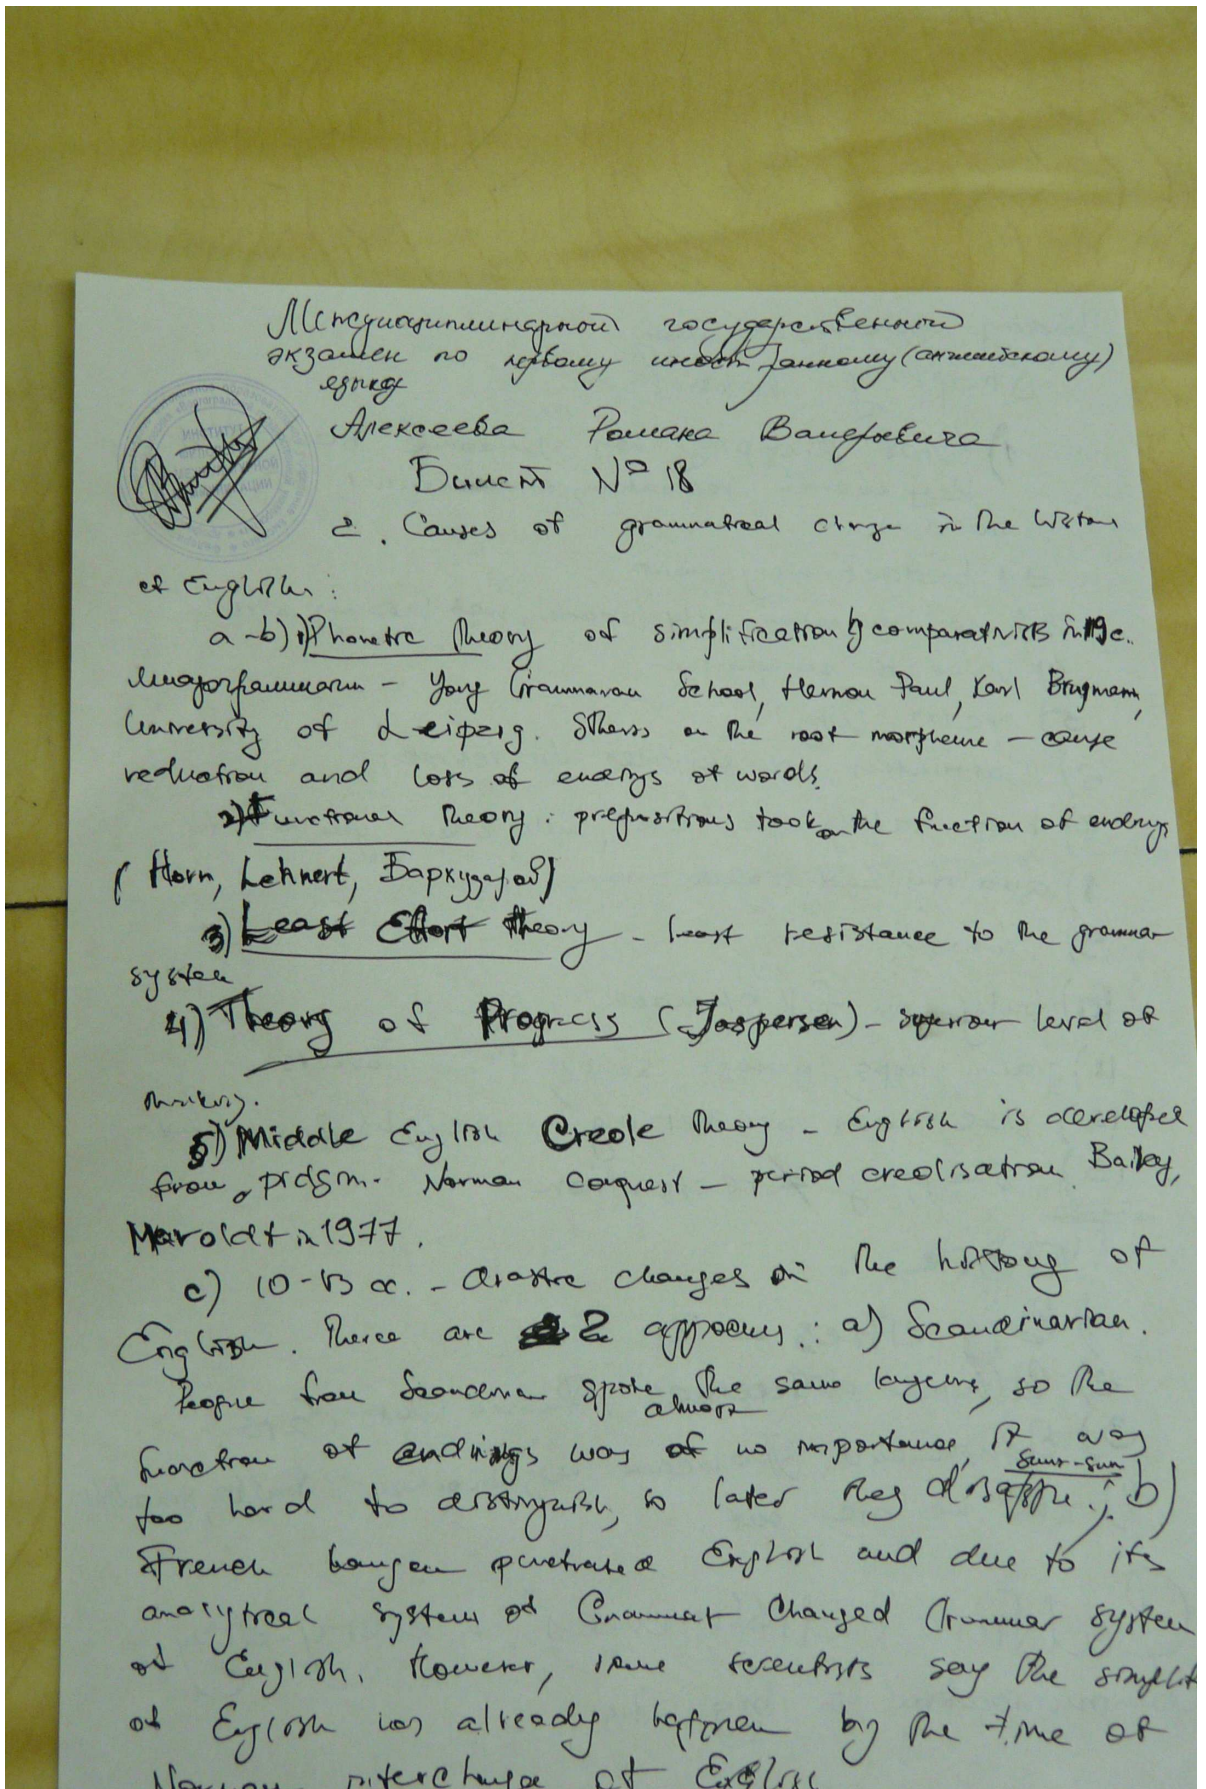 Междисциплинарной государственный
экзамен по первому иностранному (английскому)
языку
Алексеева Романа Валерьевича
Билет № 18
2. Causes of grammatical change in the
of English:
a-b) 1) Phonetic Theory of simplification by comparativists in 19 c.
Младограмматики - Yong Grammarian School, Herman Paul, Karl Brugmann,
University of Leipzig. Stress on the root morpheme - cause
reduction and loss of endings of words.
2) Functional Theory: prepositions took on the function of endings
(Horn, Lehnert, Бархударов)
3) Least Effort Theory - least resistance to the grammar
system
4) Theory of Progress (Jespersen) - level of
thinking.
5) Middle English Creole Theory - English is developed
from pidgin. Norman Conquest - period creolisation. Bailey,
Maroldt in 1977.
c) 10-13 cc. - drastic changes in the history of
English. There are 2 : a) Scandinavian.
People from spoke the same, so the
almost
function of endings was of no importance, it was
sunu-sun
too hard to distinguish, so later they; b)
French penetrated English and due to its
analytical system of Grammar changed Grammar system
of English. However, some scientists say the
of English was already happen by the time of
interchange of English